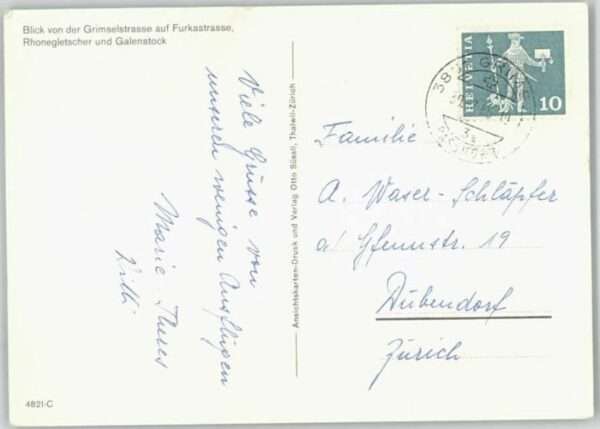 Blick von der Grimselstrasse auf Furkastrasse,
Rhonegletscher und Galenstock
Viele Grüsse von
unseren wenigen Ausflügen
Marie-Theres
Willi
Ansichtskarten-Druck und Verlag Otto Süssli, Thalwil-Zürich
HELVETIA
10
Familie
A. Waser-Schläpfer
Gfennstr. 19
Dübendorf
Zürich
4821-C